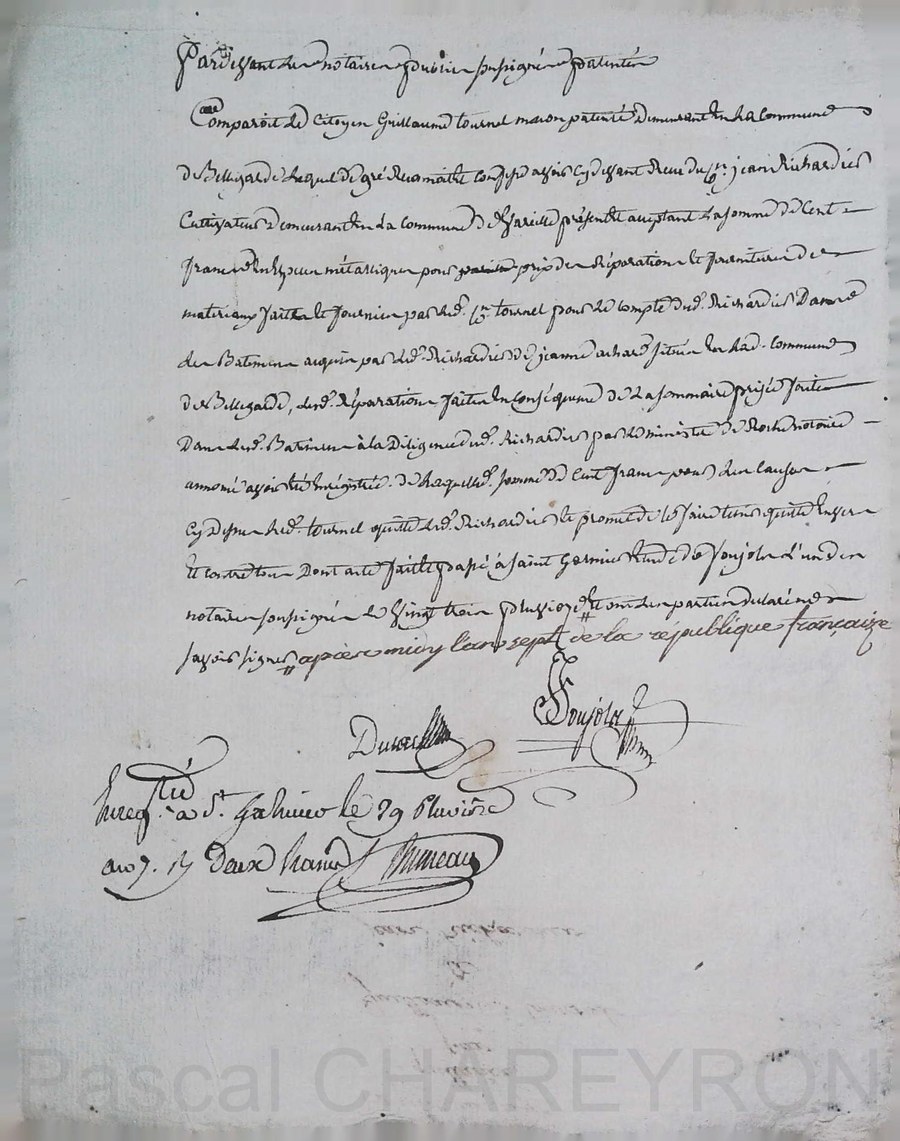 Pardevant les notaires publics soussignés patentés
Comparoit le Citoyen Guillaume tournel maçon patenté Demeurant En La Commune
de Bellegarde Lequel De gré Reconnait Confesse avoir Cy devant Reçu du Cn. jean Richardies
Cultivateur Demeurant En La Commune de présent Et acceptant La somme De Cent
francs En Espece métallique pour prix des Réparations Et fournitures de
materiaux faites Et fournies par led. Cn. tournel pour Le compte dud. Richardies Dans
des Batimens acquis par led. Richardies De jeanne achard situés En Lad. Commune
de Bellegarde, lesd. Réparations faites En Conséquence De La sommaire prisée faite
Dans lesd. Batimens à la Diligence dud. Richardies par Le ministère De Roche notaire
annoncé avoir été Enregistrée. de Laquelle somme De Cent francs pour les Causes
Cy Dessus Led. tournel quitte Led. Richardies Et promet de le faire tenir quitte Envers
Et Contre tous Dont acte fait Et passé à saint Germier Etude De Foujols L'un des
notaires soussignés Le Vingt trois pluviose Et ont Les parties Déclaré ne
savoir signer après midy l'an sept de la république française
Foujols
Enregtré. à St. le 29 Pluviôse
an 7. R deux francs
jean
Pascal CHAREYRON